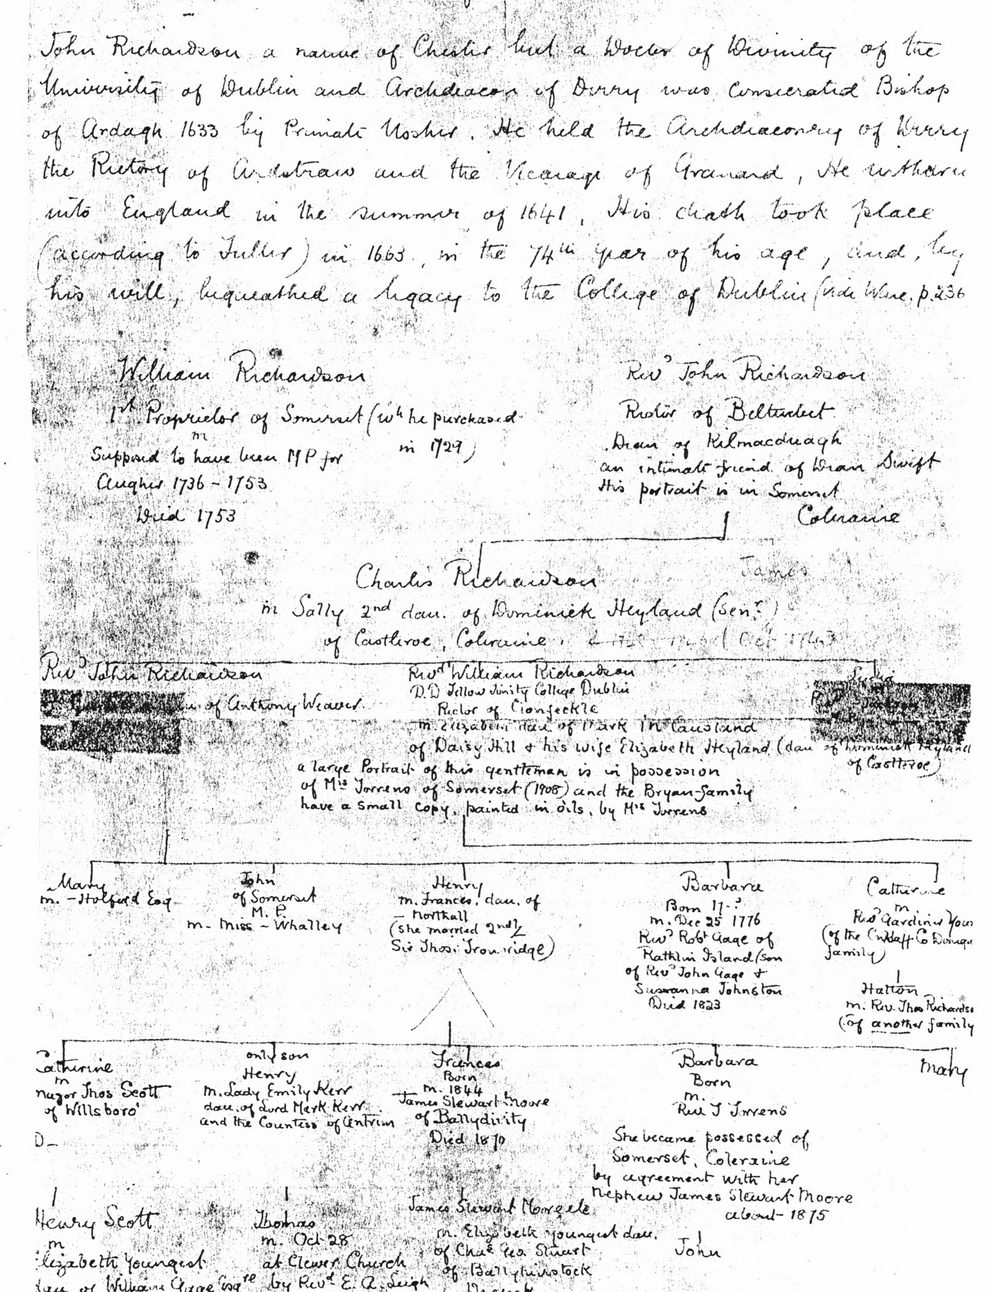 John Richardson a native of Chester but a Doctor of Divinity of the
University of Dublin and Archdeacon of Derry was consecrated Bishop
of Ardagh 1633 by Primate Ussher. He held the Archdeaconry of Derry
the Rectory of Ardstraw and the Vicarage of Granard, He withdrew
into England in the summer of 1641, His death took place
(according to Fuller) in 1663, in the 74th year of his age, and, by
his will, bequeathed a legacy to the College of Dublin (vide Ware. p.236
William Richardson
1st Proprietor of Somerset (wh he purchased
in 1729)
m
Supposed to have been M P for
Augher 1736 - 1753
Died 1753
Revd John Richardson
Rector of Belturbet
Dean of Kilmacduagh
an intimate friend of Dean Swift
His portrait is in Somerset
Coleraine
James
Charles Richardson
m Sally 2nd dau. of Dominick Heyland (Senr)
of Castleroe, Coleraine
Revd John Richardson
of Anthony Weaver.
Revd William Richardson
D.D Fellow Trinity College Dublin
Rector of Clonfeckle
m. Elizabeth dau of Mark McCausland
of Daisy Hill & his wife Elizabeth Heyland (dau of Dominick Heyland
of Castleroe)
a large Portrait of this gentleman is in possession
of Mrs Torrens of Somerset (1908) and the Bryan family
have a small copy, painted in oils, by Mrs Torrens
Mary
m. - Holford Esq
John
of Somerset
M. P.
m- Miss - Whalley
Henry
m. Frances, dau. of
- Northall
(she married 2ndly
Sir Thos: Trowridge)
Barbara
Born 17-?
m. Dec 25 1776
Revd Robt Gage of
Rathlin Island (son
of Revd John Gage &
Susanna Johnston
Died 1823
Catherine
m
Revd Gardiner Youn
family)
Hatton
m. Rev. Thos Richardso
(of another family
Catherine
m
major Thos Scott
of Willsboro'
D-
only son
Henry
m. Lady Emily Kerr
dau. of Lord Mark Kerr
and the Countess of Antrim
Frances
Born
m. 1844
James Stewart Moore
of Ballydivity
Died 1870
Barbara
Born
m.
Rev T Torrens
She became possessed of
Somerset, Coleraine
by agreement with her
nephew James Stewart Moore
about- 1875
Mary
Henry Scott
m
Elizabeth Youngest
dau of William Gage Esqre
Thomas
m. Oct 28
at Clewer Church
by Revd E. A. Leigh
James Stewart Moore
m. Elizabeth youngest dau.
of Chas Geo Stuart
of Ballyhivistock
John